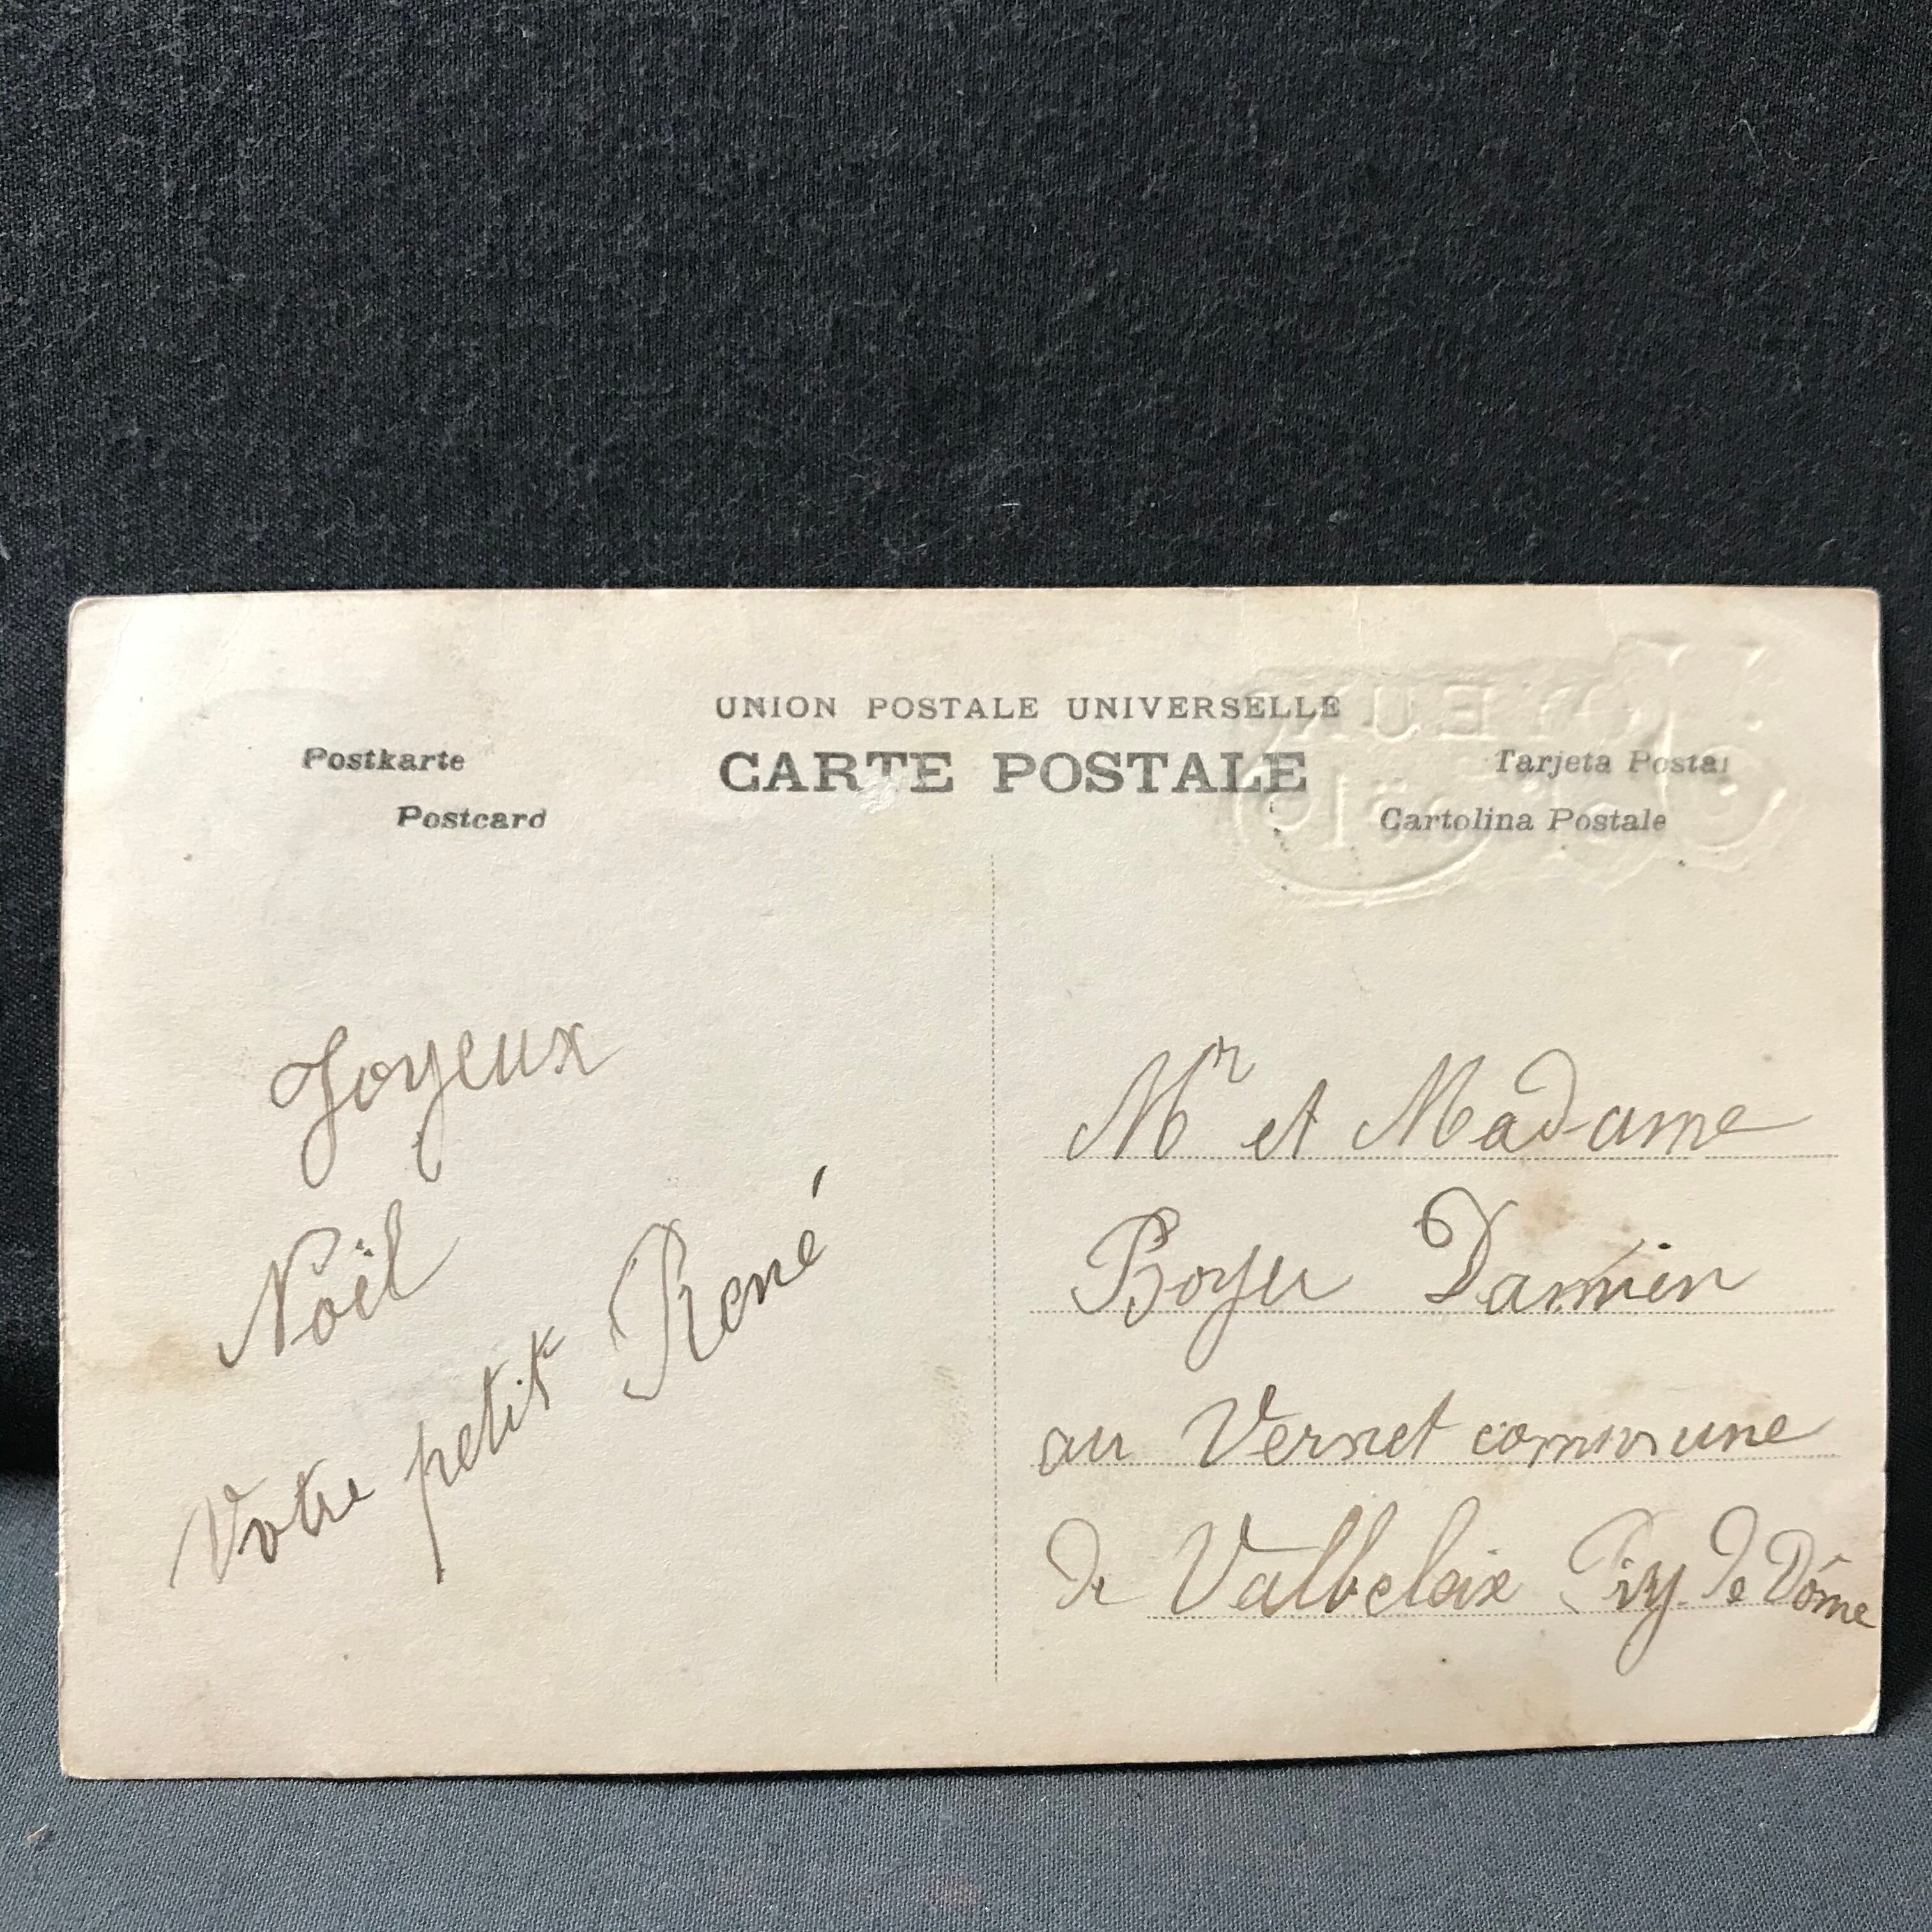 UNION POSTALE UNIVERSELLE
CARTE POSTALE
Postkarte
Postcard
Tarjeta Postal
Cartolina Postale
JOYEUX
Noël
Joyeux
Noël
Votre petit René
Mr et Madame
Boyer Damien
au Vernet commune
de Valbeleix Puy de Dôme